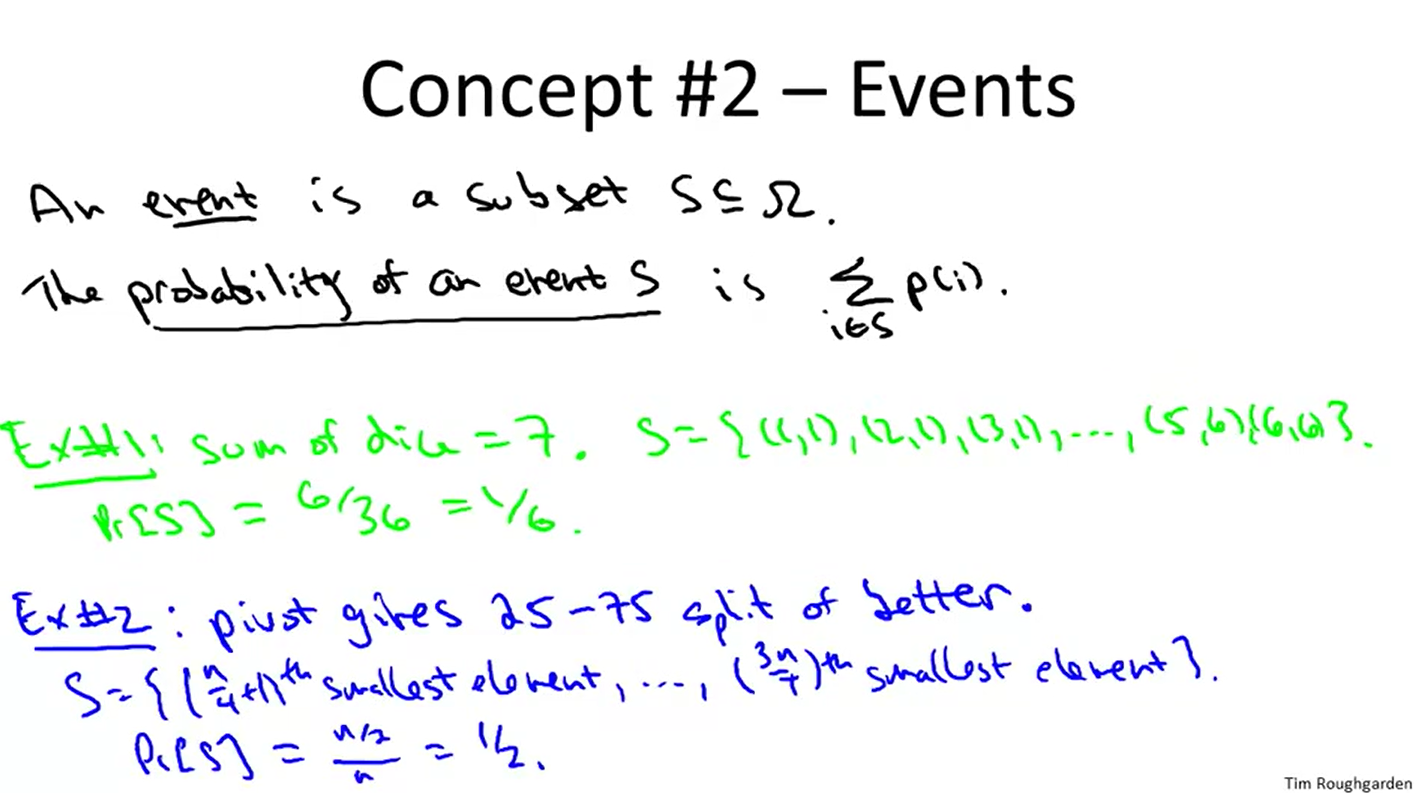 Concept #2 – Events
An event is a subset S ⊆ Ω.
The probability of an event S is ∑_{i∈S} p(i).
Ex#1: sum of dice = 7. S = {(1,1),(2,1),(3,1),...,(5,6),(6,6)}.
Pr[S] = 6/36 = 1/6.
Ex#2: pivot gives 25–75 split of better.
S = {(n/4+1)th smallest element, ..., (3n/4)th smallest element}.
Pr[S] = (n/2)/n = 1/2.
Tim Roughgarden